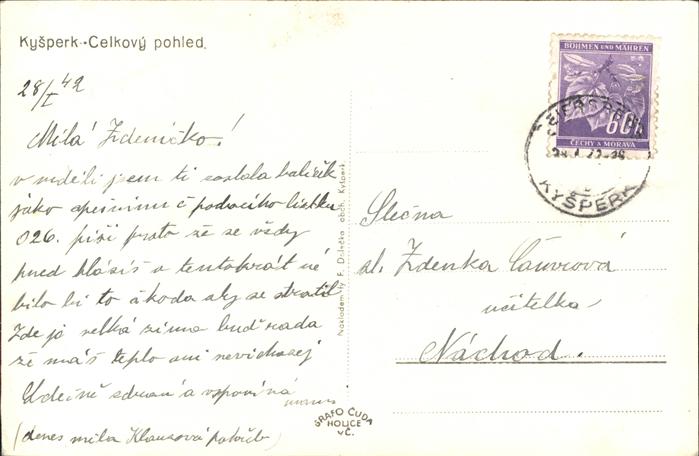 Kyšperk - Celkový pohled.
28/I 42
Milá Zdeničko!
v neděli jsem ti zaslala balíček
jako spěšninu č podacího lístku
026. píši proto že se vždy
pred hlásíš a tentokrát né
bilo bi to škoda aby se stratil
Zde je velká zima buď ráda
že máš teplo ani nevicházej
Srdečně zdraví a vzpomíná
(dnes měla Klausová pohřeb)
Nakladem fy F. Distečka obch. Kyšperk
GRAFO ČUDA
HOLICE
v Č.
BÖHMEN UND MÄHREN
60
ČECHY A MORAVA
KYŠPERK
Slečna
sl. Zdenka
učitelka
Náchod.